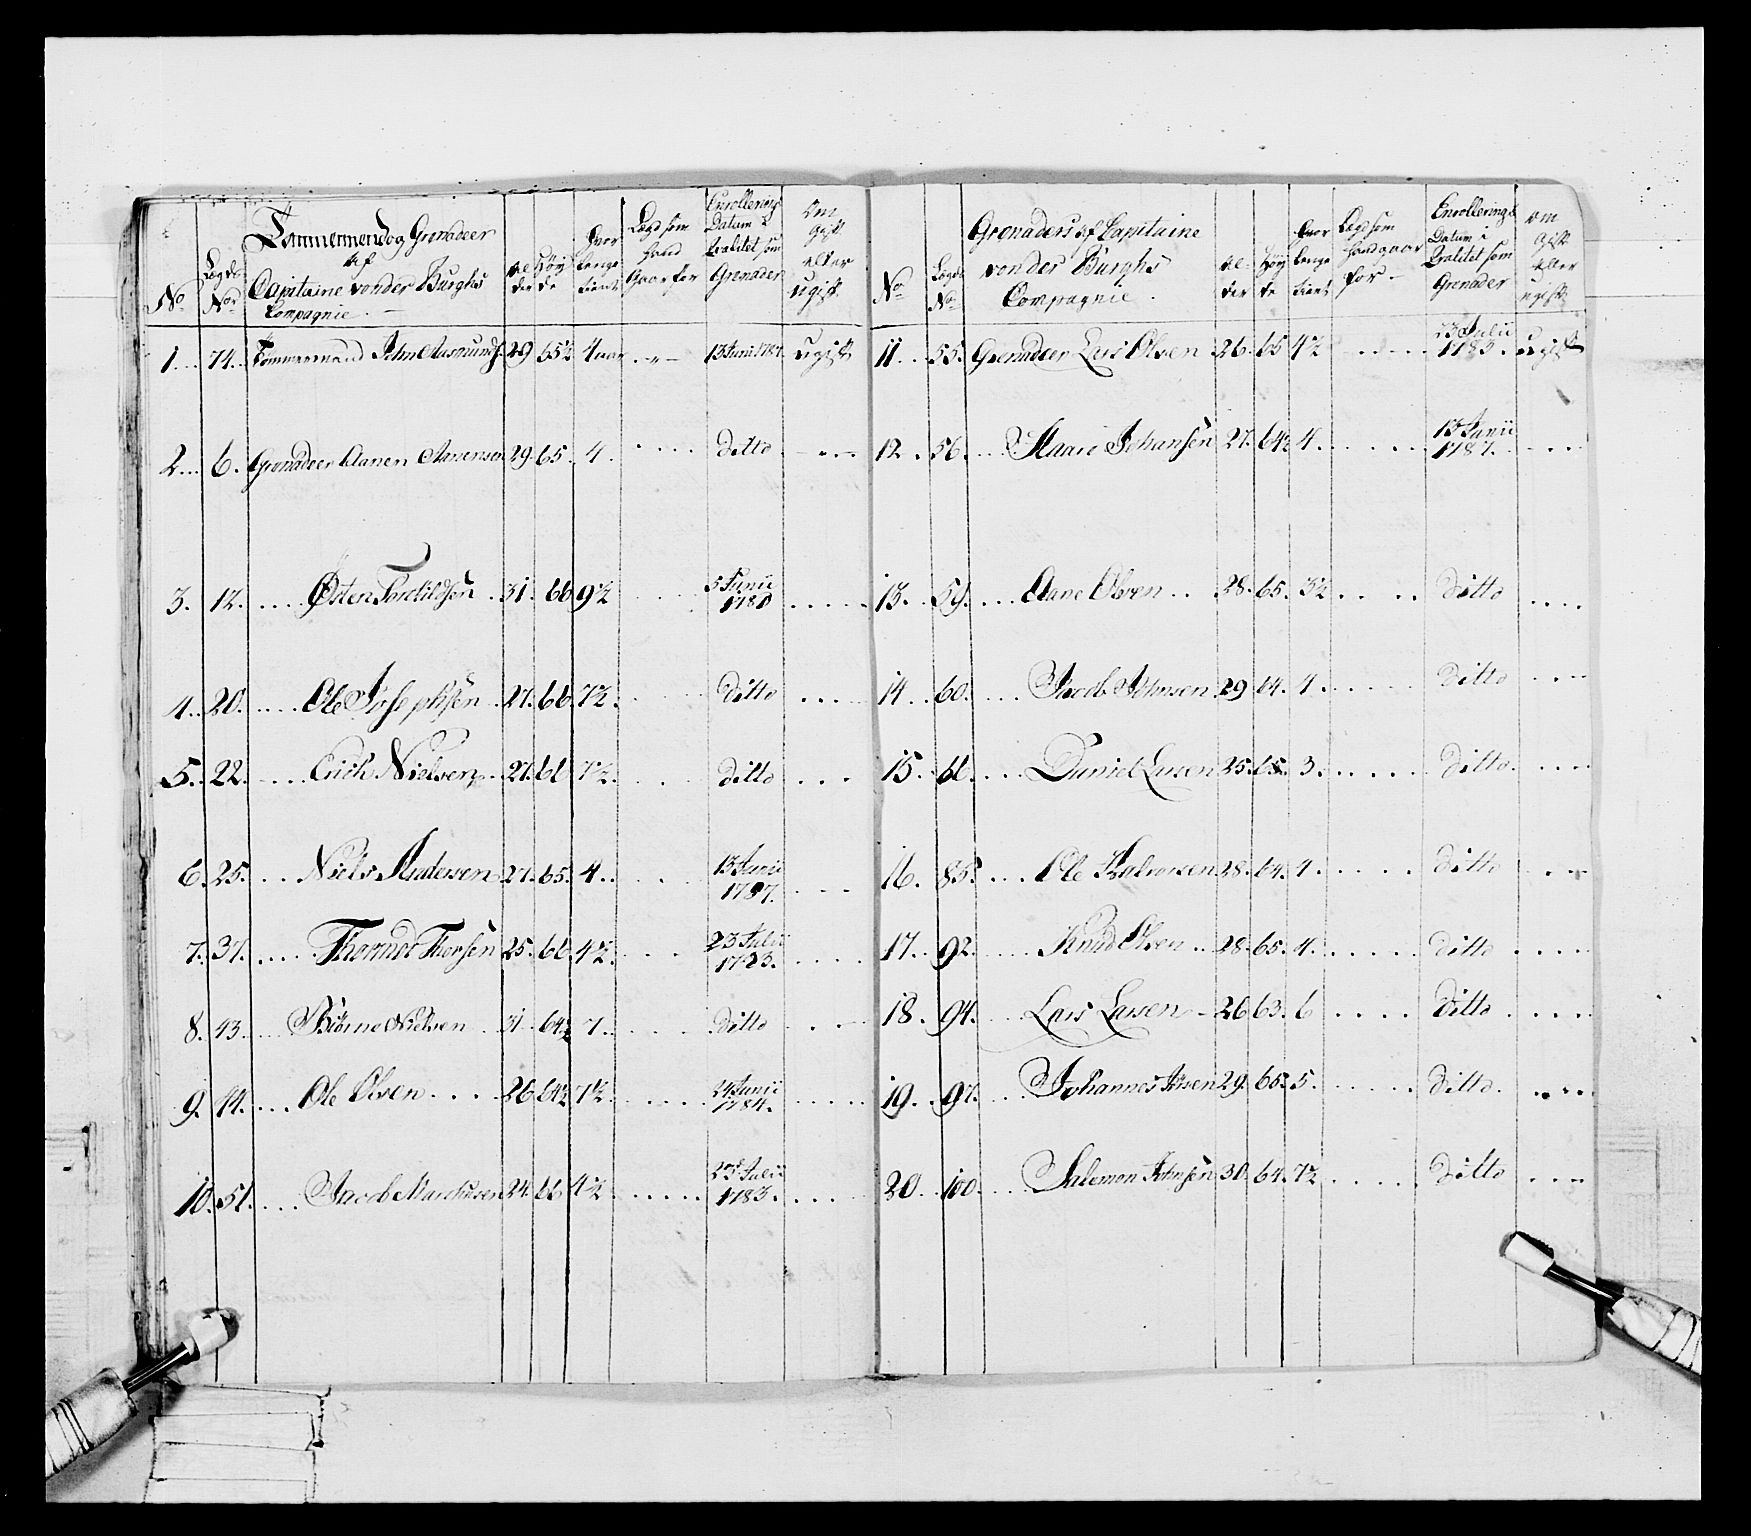 No
Lægds Nor
Tömmermend og Grenadeer af Capitaine von der Burghs Compagnie.
Alder
Høyde
Hvor længe tient
Lægd som hand gaar for
Enrollerings Datum i Qvalitet som Grenader
Om gift eller ugift
1. 74. Tömmermand John Aasmunds. 29 65½ 4 aar 13 Junii 1787. ugift
2. 6. Grenadeer Aanen Aanensen 29. 65. 4. ditto
3. 12. Østen Torkildsen 31. 66 9½ 5 Junii 1780
4. 20. Ole Josephsen 27. 66. 7½. ditto
5. 22. Erich Nielsen 27. 66 7½. ditto
6. 25. Niels Andersen 27. 65. 4. 13 Junii 1787.
7. 37. Thomas Thorsen 25. 66. 4½. 23 Julii 1783.
8. 43. Biørne Nielsen 31 64½ 7. ditto
9. 44. Ole Olsen 26 64½ 7½ 24 Junii 1784.
10. 51. Jacob Marchusen 24. 66 4½ 23 Julii 1783.
No
Lægds No
Grenaders af Capitaine von der Burghs Compagnie.
Alder
Høyde
Hvor længe tient
Lægd som hand gaar for
Enrollerings Datum i Qvalitet som Grenader
om gift eller ugift
11. 55. Grenadeer Lars Olsen 26. 65 4½ 23 Julii 1783. ugift
12. 56. Haaie Johansen 27. 64½ 4. 13 Junii 1787.
13. 59. Aane Olsen 28. 65. 3½ ditto
14 60. Jacob Johnsen 29 64. 4. ditto
15. 66. Daniel Larsen 25. 65. 3. ditto
16. 85. Ole Halvorsen 28. 64. 4. ditto
17. 92. Knud Olsen 28. 65. 4. ditto
18. 94. Lars Larsen 26 63. 6 ditto
19. 97. Johannes Ibsen 29. 65. 5. ditto
20. 100. Salemon Johnsen 30. 64. 7½ ditto